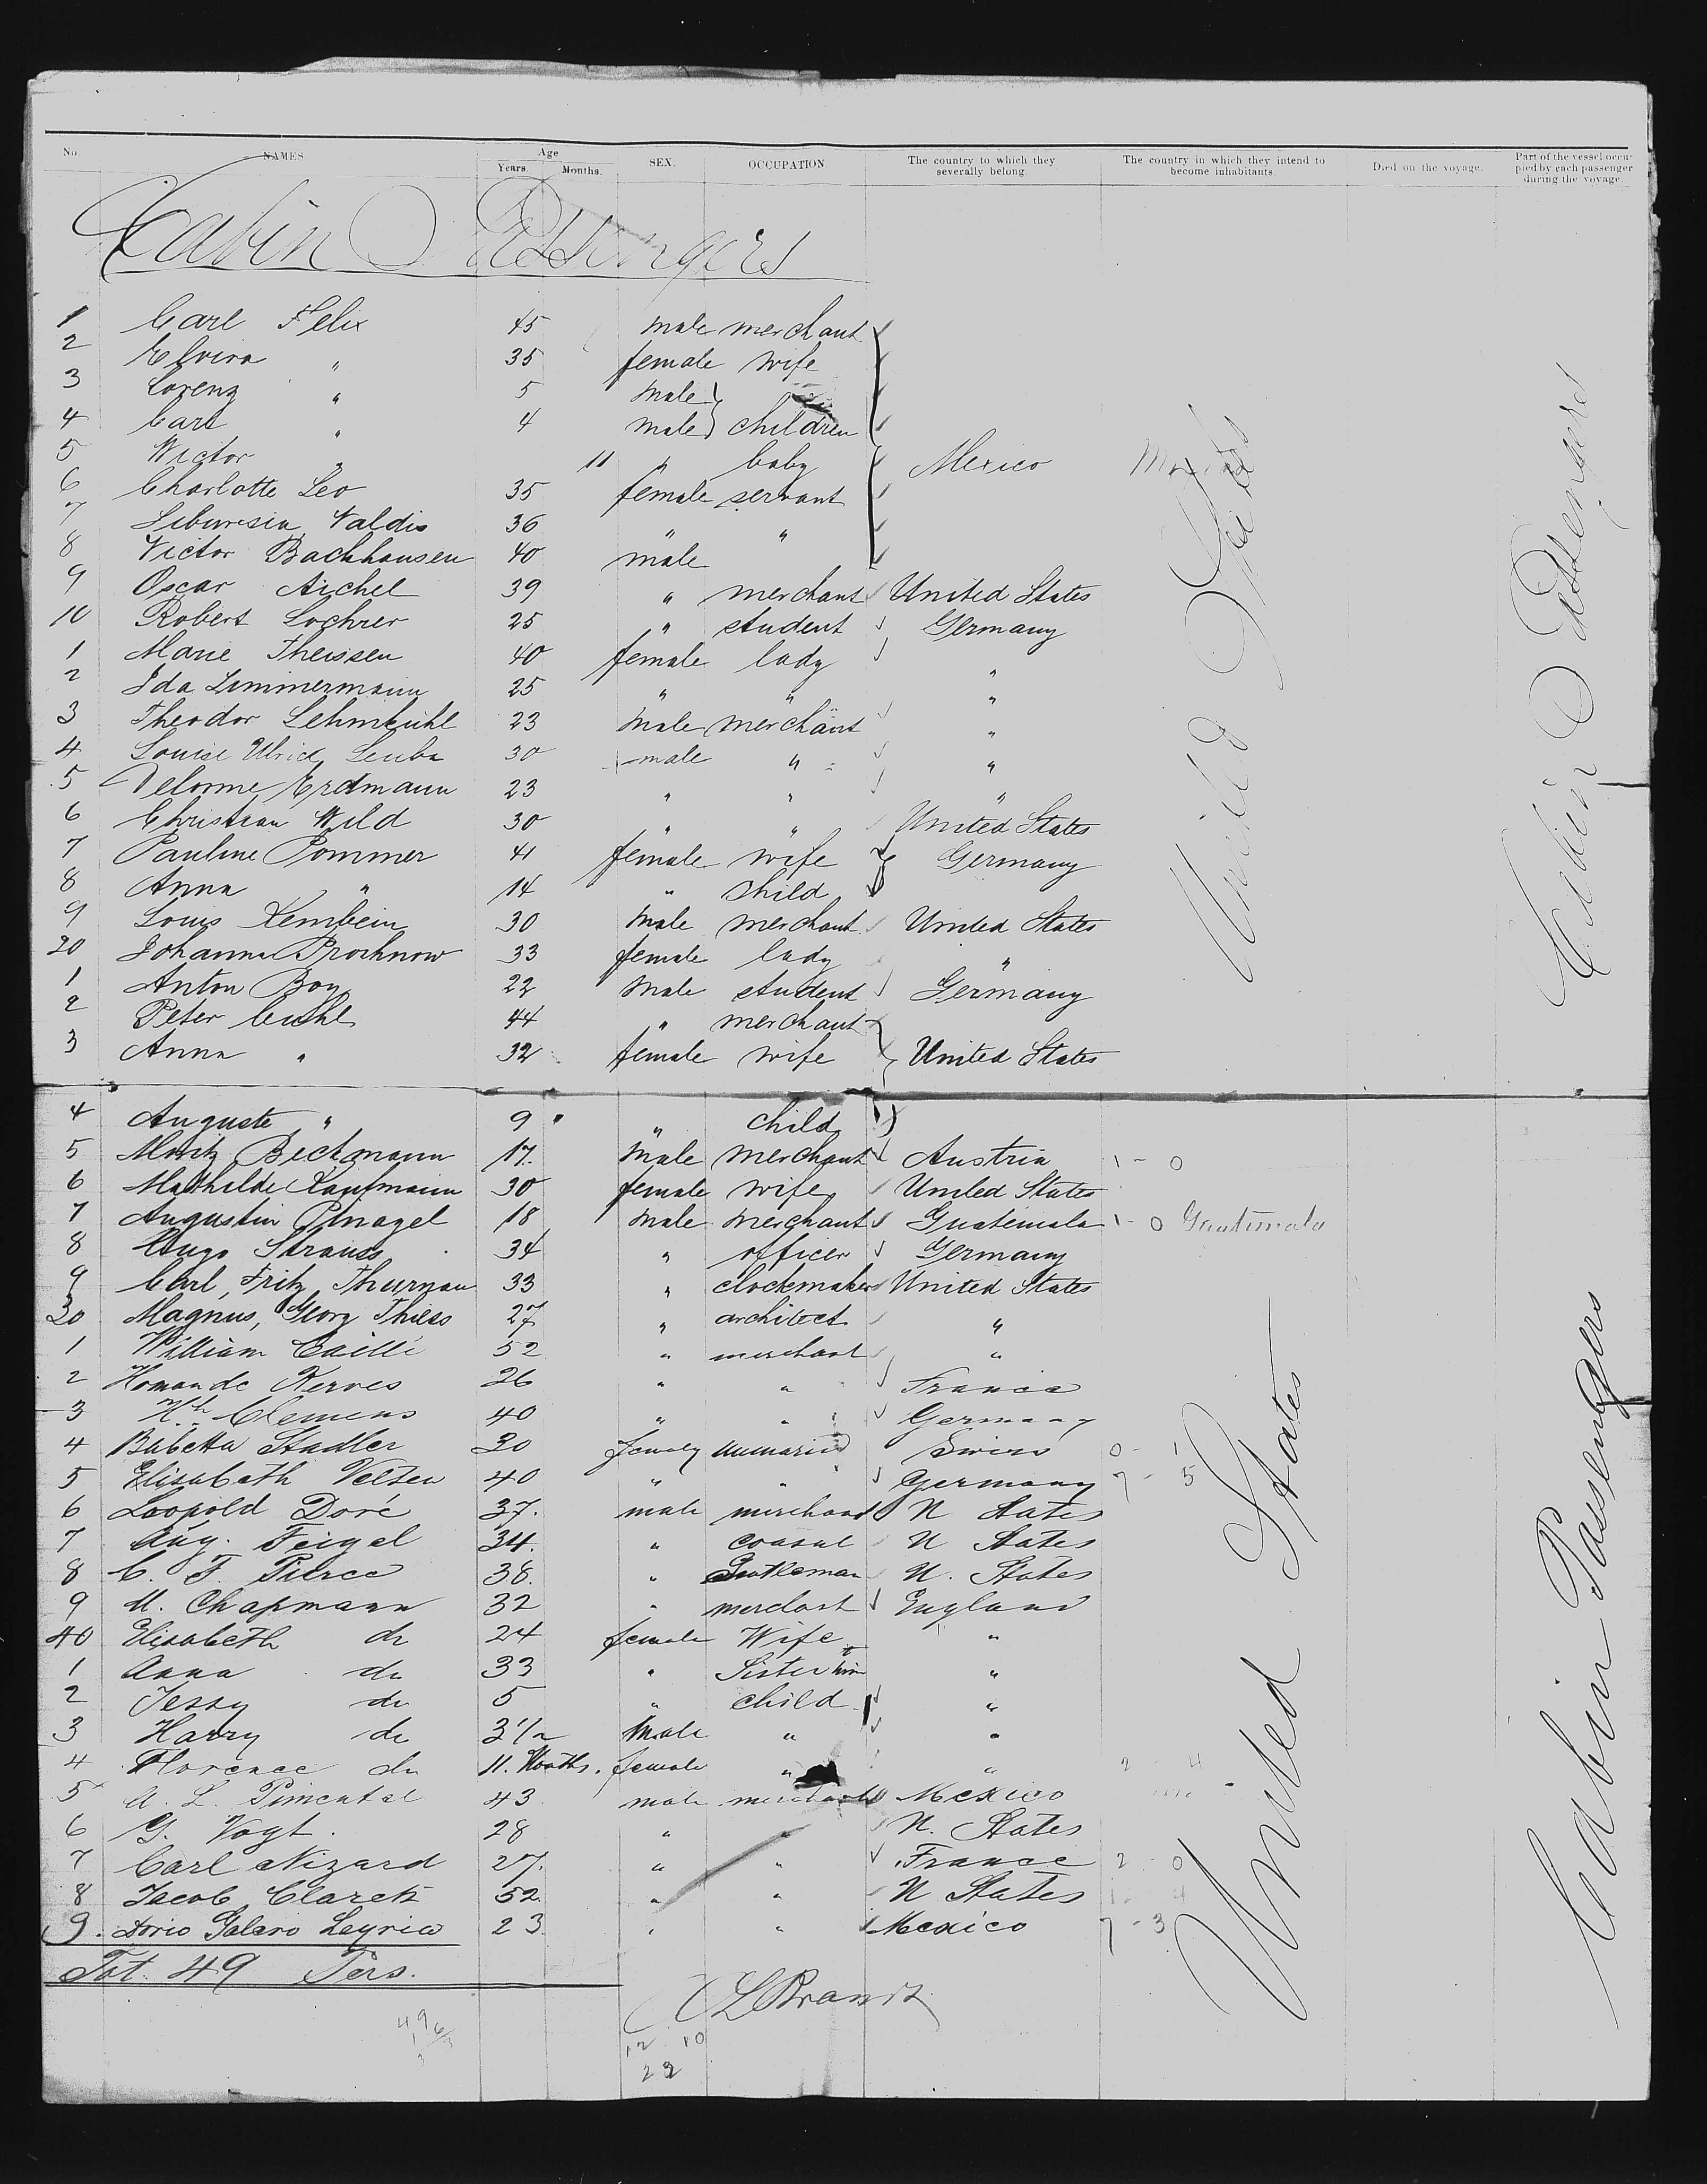 No. NAMES Age Years. Months. SEX. OCCUPATION. The country to which they severally belong. The country in which they intend to become inhabitants. Died on the voyage. Part of the vessel occupied by each passenger during the voyage.
Cabin Passengers
1 Carl Felix 45 male merchant
2 Elvira " 35 female wife
3 Lorenz " 5 male
4 Carl " 4 male children
5 Victor " 11 " baby Mexico Mexico
6 Charlotte Leo 35 female servant
7 Valdis 36 " "
8 Victor Backhausen 40 male
9 Oscar Aichel 39 " merchant United States
10 Robert Lochrer 25 " student Germany
1 Marie Theissen 40 female lady "
2 Ida Zimmermann 25 " " "
3 Theodor Lehmkuhl 23 male merchant "
4 Louise Ulrid Leuba 30 male " "
5 Delorme Erdmann 23 " " "
6 Christian Wild 30 " " United States
7 Pauline Pommer 41 female wife Germany
8 Anna " 14 " child
9 Louis Kembein 30 male merchant United States
20 Johanna Prochnow 33 female lady "
1 Anton Boy 22 male student Germany
2 Peter Cuhl 44 " merchant
3 Anna " 32 female wife United States
4 Auguste " 9 " child
5 Moritz Beckmann 17. male merchant Austria 1 - 0
6 Mathilde Kaufmann 30 female wife United States
7 Augustin 18 male merchant Guatemala 1 - 0 Guatemala
8 Hugo Strauss 34 " officer Germany
9 Carl, Fritz Thurnau 33 " clockmaker United States
30 Magnus, Georg Thiess 27 " architect "
1 William Caillé 52 " merchant "
2 Kerves 26 " " France
3 Hh. Clemens 40 " " Germany
4 Babetta Stadler 30 female unmaried Swiss 0 - 1
5 Elisabeth Velten 40 " " Germany 7 - 5
6 Leopold Doré 37. male merchant U States
7 Aug. Feigel 34. " consul U States
8 C. F. Pierce 38. " Gentleman U. States
9 M. Chapmann 32 " merchant England
40 Elisabeth do 24 female Wife "
1 Anna do 33 " Sister "
2 Jessy do 5 " child "
3 Harry do 3 1/2 male " "
4 Florence do 11. Months. female " " 2 - 4
5 A. L. Pimental 43 male merchant Mexico
6 G. Vogt. 28 " " U. States
7 Carl Nizard 27. " " France 2 - 0
8 Jacob Claretz 52 " " U States 1 - 4
9. Dorio Galero Leyrico 23 " " Mexico 7 - 3
Tot. 49 Pers.
L Brandt
12 10
22
United States
United States
Cabin Passengers
Cabin Passengers